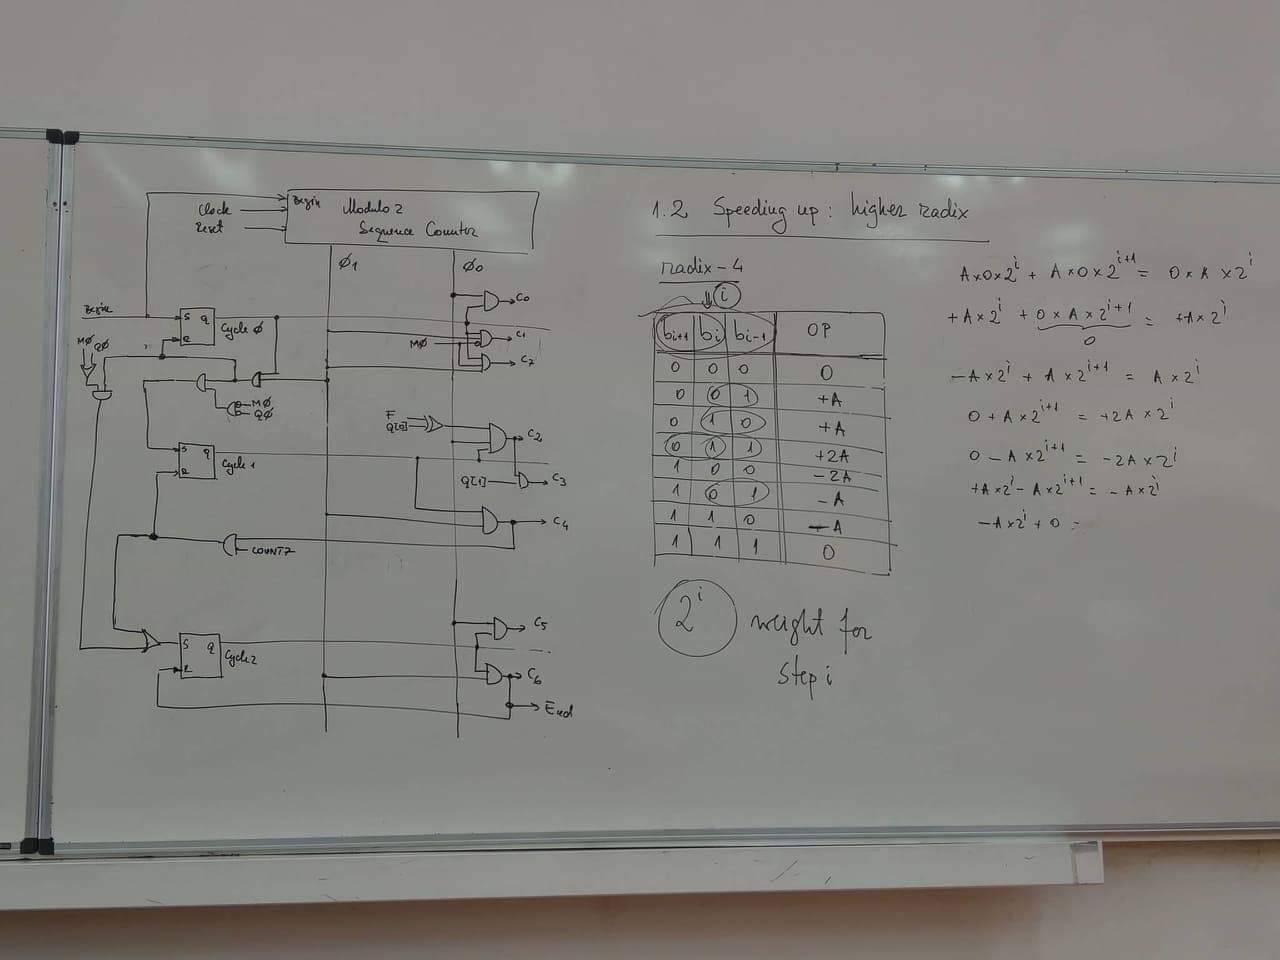 Begin
Clock
Reset
Modulo 2
Sequence Counter
Φ1
Φ0
C0
Begin
S Q
R
Cycle 0
MΦ
C1
C7
MΦ QΦ
MΦ
QΦ
F
Q[0]
C2
S Q
R
Cycle 1
Q[1]
C3
C4
COUNT7
C5
S Q
R
Cycle 2
C6
End
1.2 Speeding up: higher radix
radix-4
i
b_{i+1} b_i b_{i-1} OP
0 0 0 0
0 0 1 +A
0 1 0 +A
0 1 1 +2A
1 0 0 -2A
1 0 1 -A
1 1 0 -A
1 1 1 0
2^i weight for
step i
A×0×2^i + A×0×2^{i+1} = 0×A×2^i
+A×2^i + 0×A×2^{i+1} = +A×2^i
0
-A×2^i + A×2^{i+1} = A×2^i
0 + A×2^{i+1} = +2A×2^i
0 - A×2^{i+1} = -2A×2^i
+A×2^i - A×2^{i+1} = -A×2^i
-A×2^i + 0 =